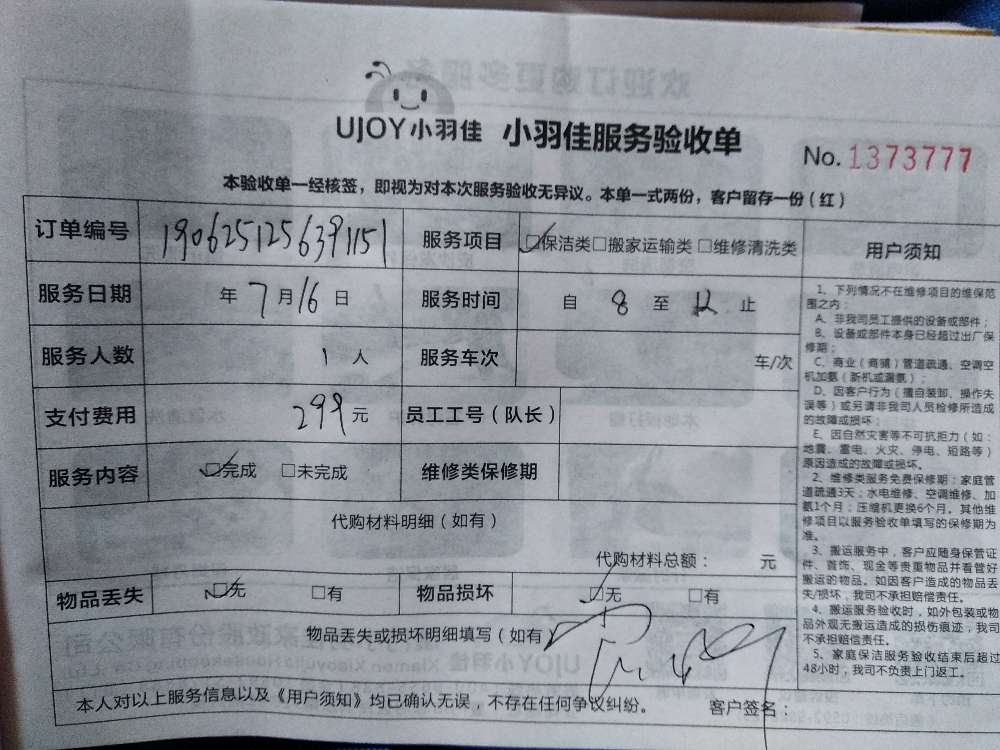 UJOY小羽佳 小羽佳服务验收单
No. 1373777
本验收单一经核签，即视为对本次服务验收无异议。本单一式两份，客户留存一份（红）
订单编号 1906251256391151 服务项目 ☑保洁类□搬家运输类□维修清洗类
服务日期 年 7 月 16 日 服务时间 自 8 至 12 止
服务人数 1 人 服务车次 车/次
支付费用 299 元 员工工号（队长）
服务内容 ☑完成 □未完成 维修类保修期
代购材料明细（如有）
代购材料总额： 元
物品丢失 ☑无 □有 物品损坏 ☑无 □有
物品丢失或损坏明细填写（如有）
本人对以上服务信息以及《用户须知》均已确认无误，不存在任何争议纠纷。 客户签名：
用户须知
1、下列情况不在维修项目的维保范
围之内：
A、非我司员工提供的设备或部件；
B、设备或部件本身已经超过出厂保
修期；
C、商业（商铺）管道疏通、空调空
机加氨（新机或漏氨）；
D、因客户行为（擅自装卸、操作失
误等）或另请非我司人员检修所造成
的故障或损坏；
E、因自然灾害等不可抗拒力（如：
地震、雷电、火灾、停电、短路等）
原因造成的故障或损坏。
2、维修类服务免费保修期：家庭管
道疏通3天；水电维修、空调维修、加
氨1个月；压缩机更换6个月。其他维
修项目以服务验收单填写的保修期为
准。
3、搬运服务中，客户应随身保管证
件、首饰、现金等贵重物品并看管好
搬运的物品。如因客户造成的物品丢
失/损坏，我司不承担赔偿责任。
4、搬运服务验收时，如外包装或物
品外观无搬运造成的损伤痕迹，我司
不承担赔偿责任。
5、家庭保洁服务验收结束后超过
48小时，我司不负责上门返工。